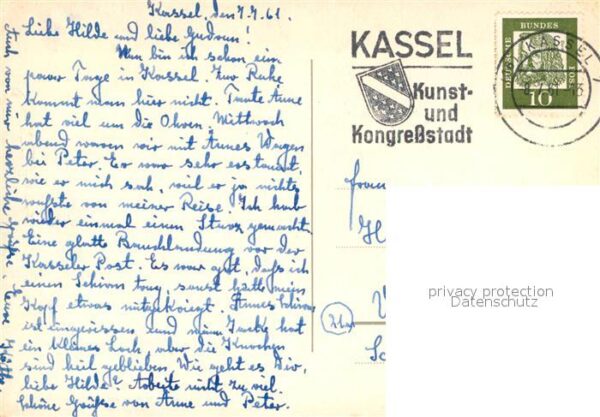 Kassel, den 7.7.61.
Liebe Hilde und liebe Gudrun!
Nun bin ich schon ein
paar Tage in Kassel. Zur Ruhe
kommt man hier nicht. Tante Anne
hat viel um die Ohren. Mittwoch
abend waren wir mit Annes Wagen
bei Peter. Er war sehr erstaunt,
wie er mich sah, weil er ja nichts
wußte von meiner Reise. Ich hab
wieder einmal einen Sturz gemacht.
Eine glatte Bauchlandung vor der
Kasseler Post. Es war gut, daß ich
einen Schirm trug, sonst hätte mein
Kopf etwas mitgekriegt. Annes Schirm
ist eingerissen und meine Jacke hat
ein kleines Loch aber die Knochen
sind heil geblieben. Wie geht es Dir,
liebe Hilde? Arbeite nicht zu viel.
Schöne Grüße von Anne und Peter.
Auch von mir herzliche Grüße Eure Käthe.
KASSEL
Kunst-
und
Kongreßstadt
DEUTSCHE BUNDESPOST
10
KASSEL
Frau
H
privacy protection
Datenschutz